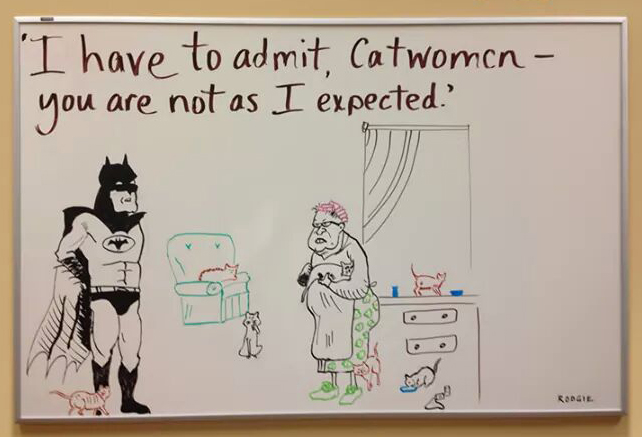 'I have to admit, Catwoman –
you are not as I expected.'
RODGIE